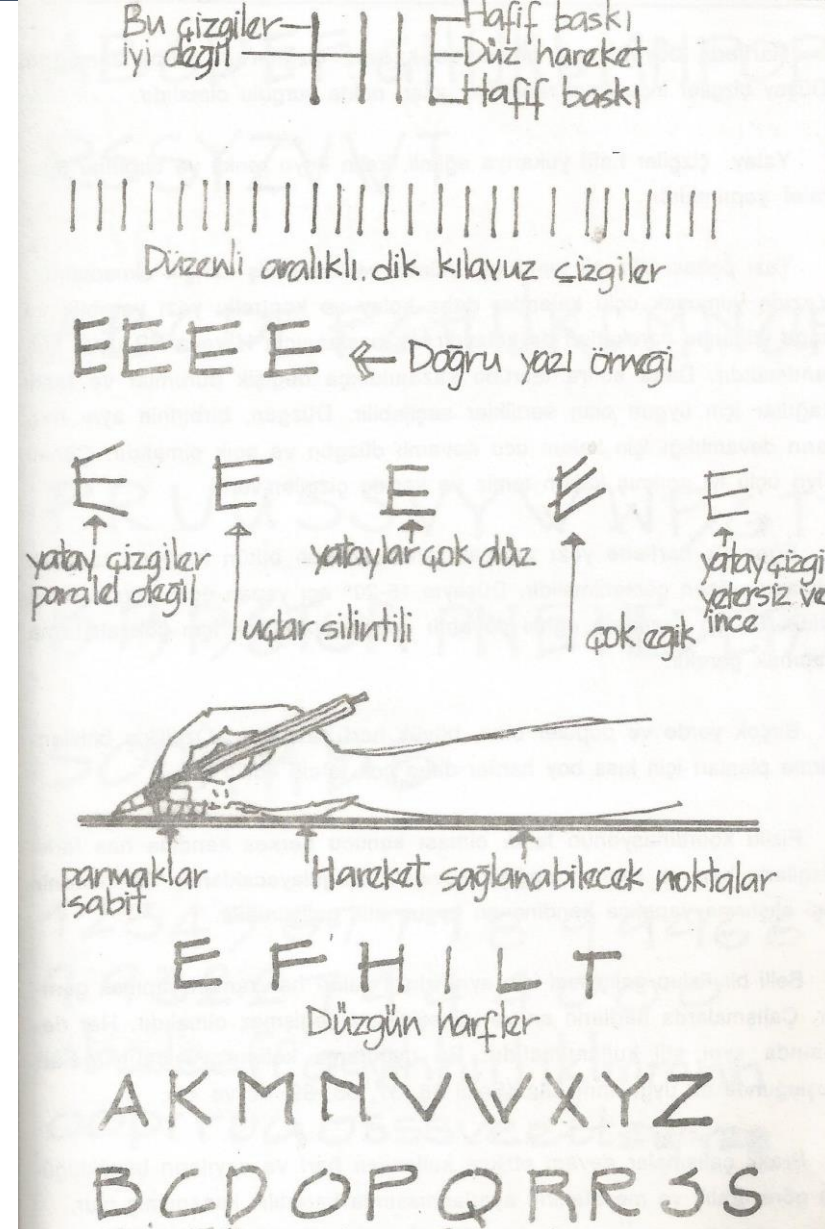 Bu çizgiler
iyi değil
Hafif baskı
Düz hareket
Hafif baskı
Düzenli aralıklı. dik kılavuz çizgiler
E E E E Doğru yazı örneği
E E E E E
yatay çizgiler
paralel değil
uçlar silintili
yataylar çok düz
çok eğik
yatay çizgi
yetersiz ve
ince
parmaklar
sabit
Hareket sağlanabilecek noktalar
E F H I L T
Düzgün harfler
A K M N V W X Y Z
B C D O P Q R R J S